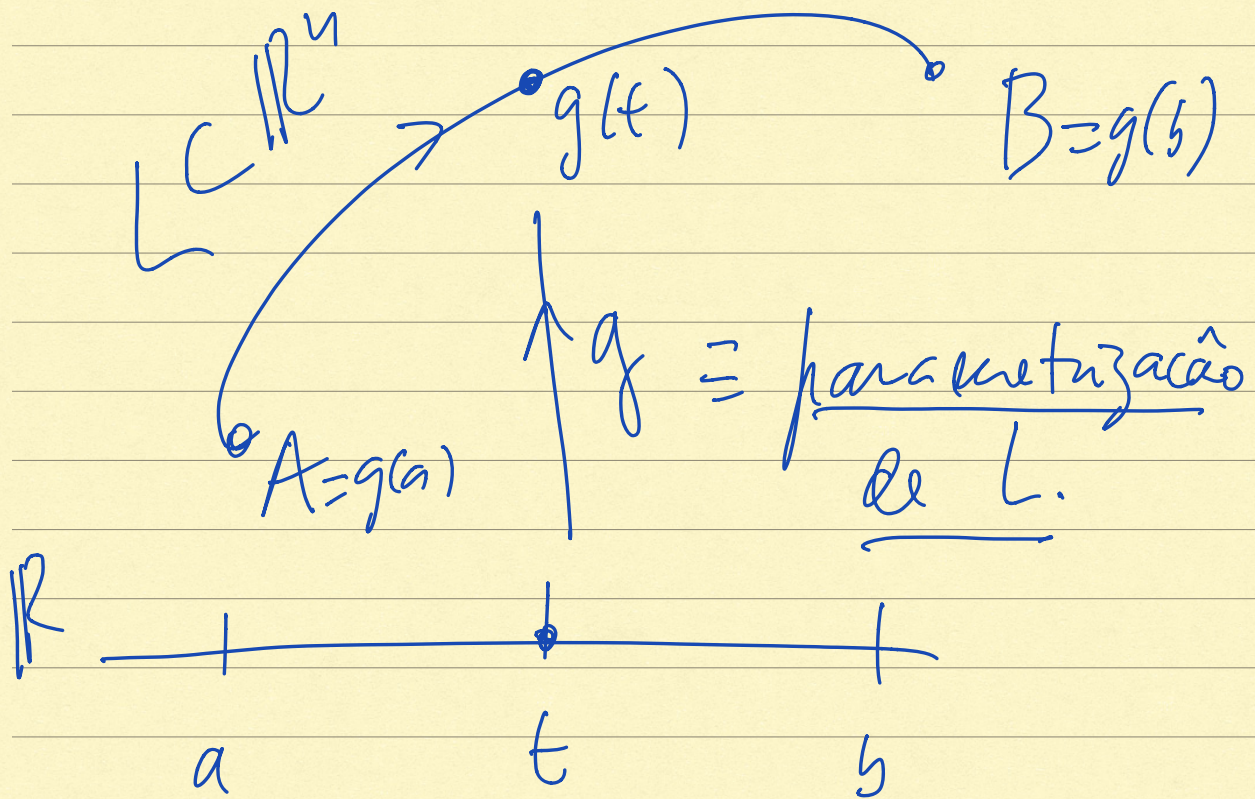 L ⊂ ℝⁿ
g(t)
B=g(b)
g = parametrização
de L.
A=g(a)
ℝ
a t b